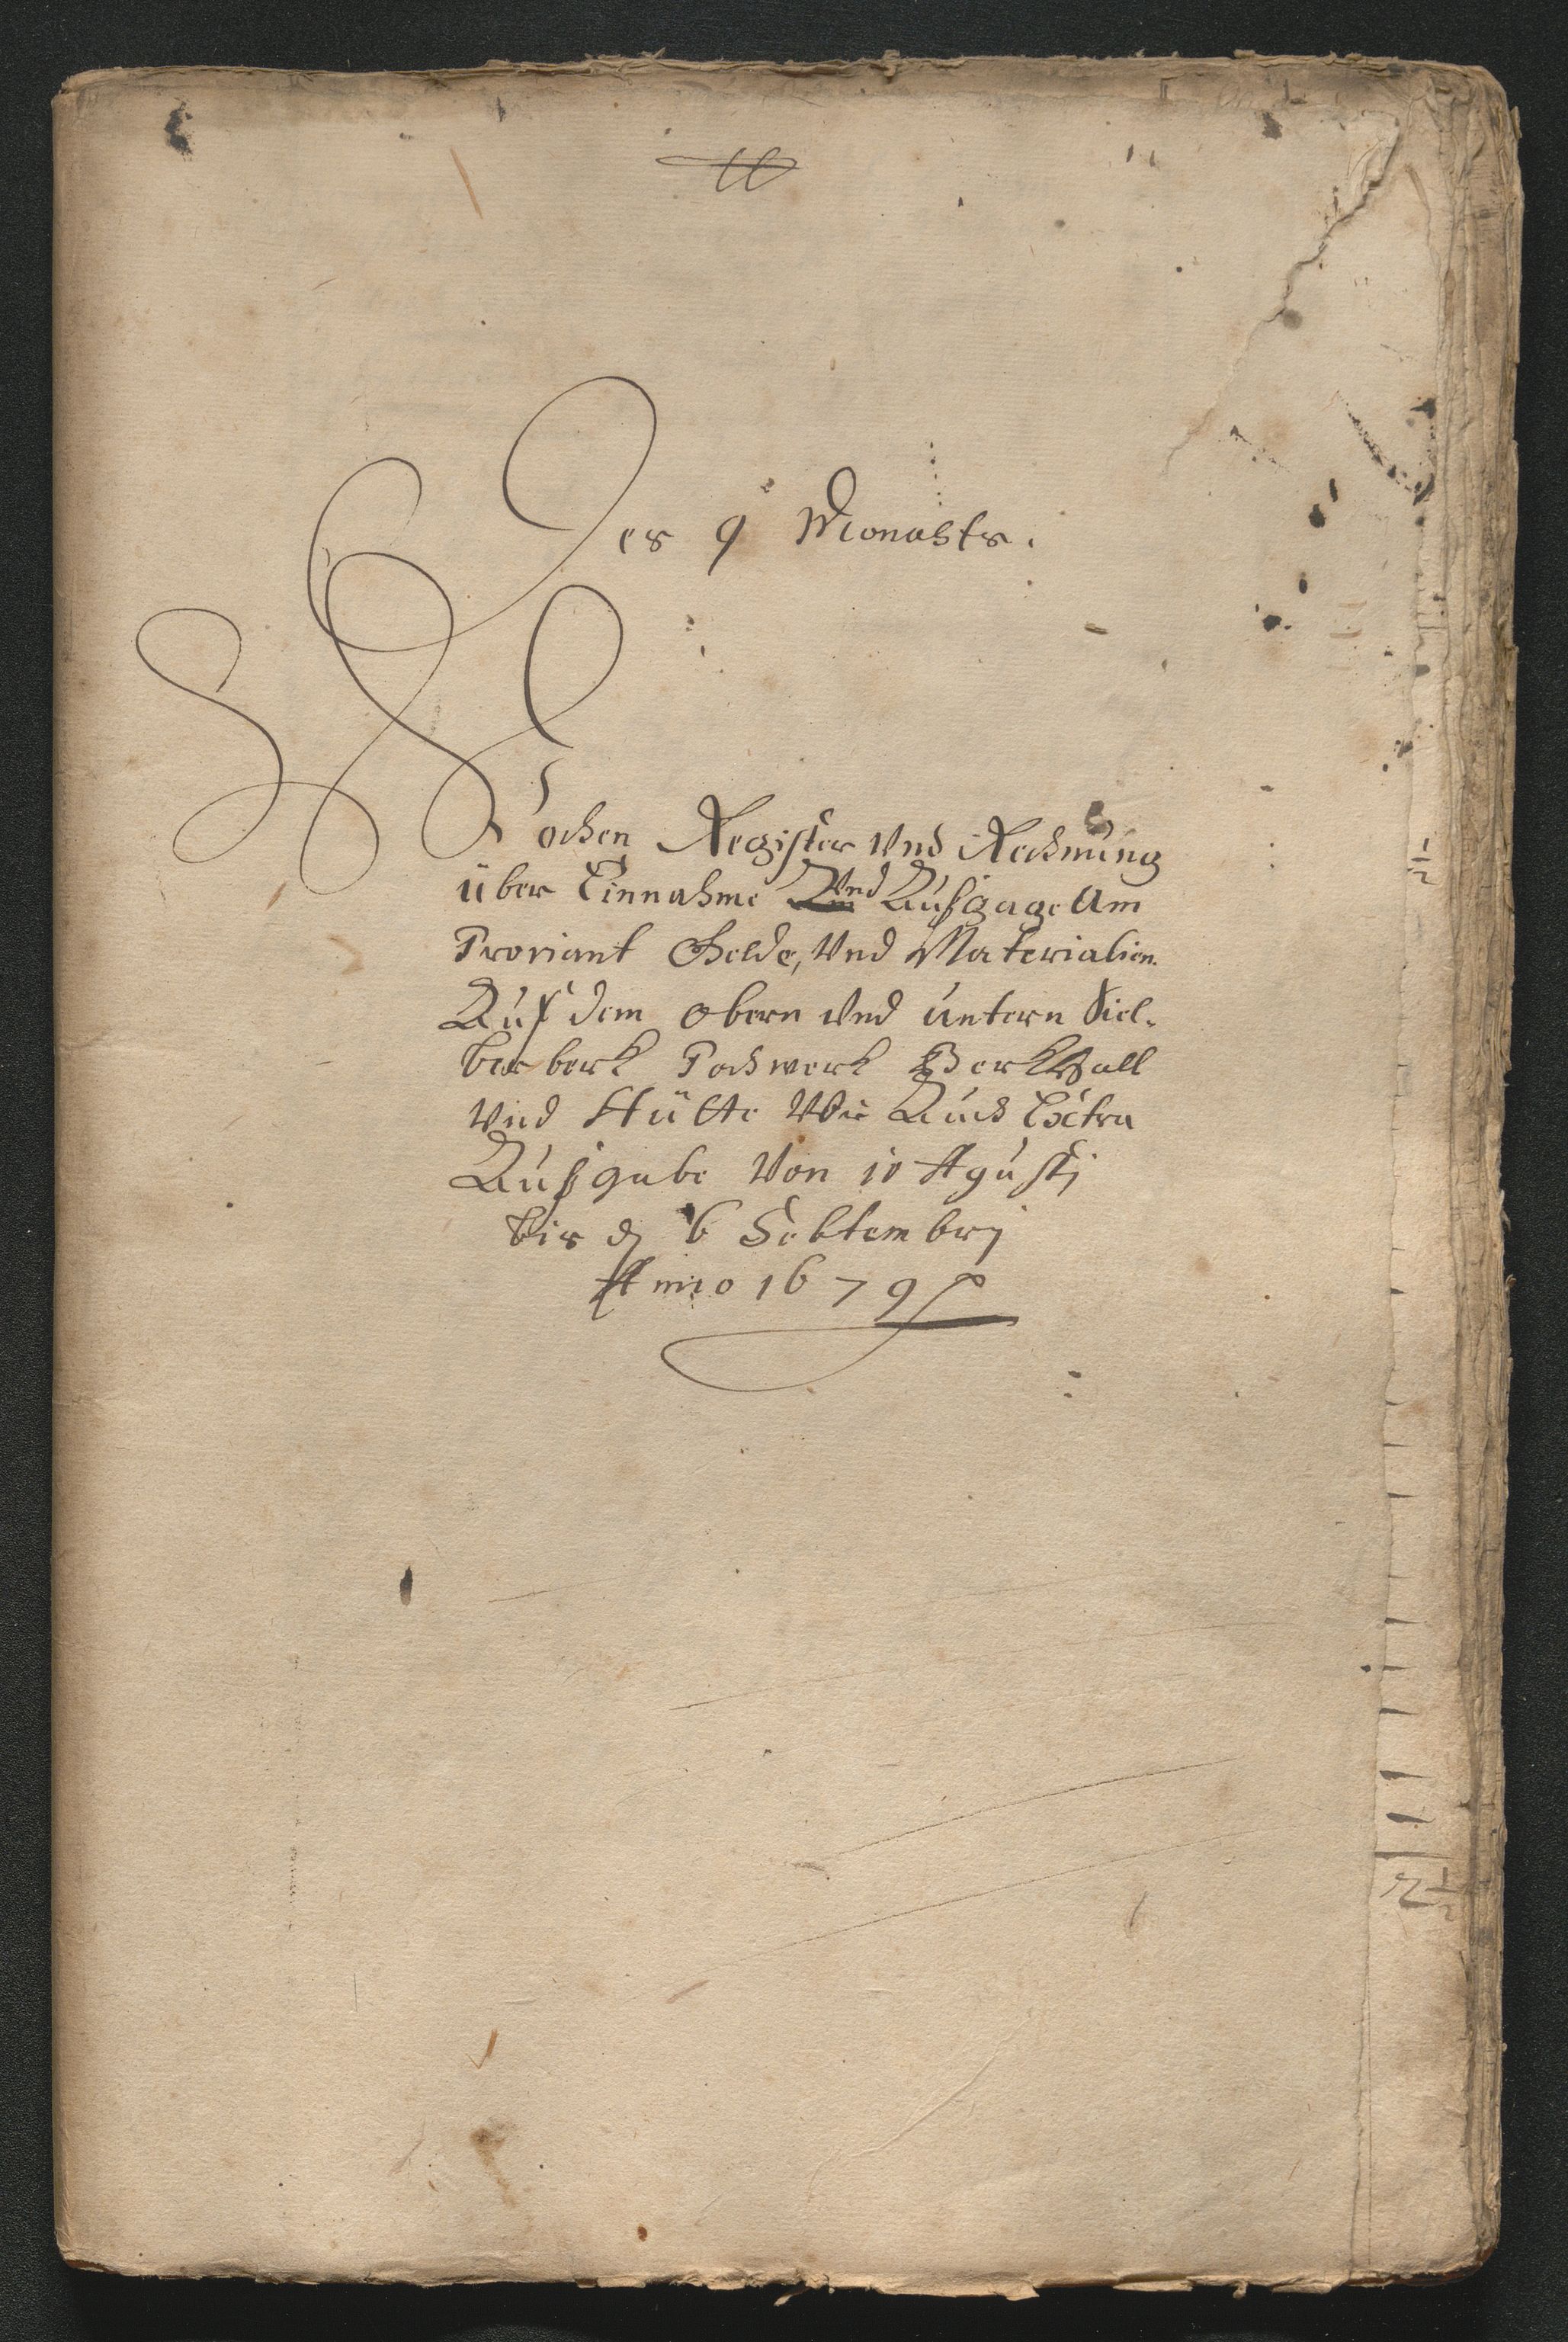 Des 9 Monahts.
Wochen Register Und Rechnung
über Einnahme Und Außgage Am
Proviant Gelde, Und Materialien
Auf dem obern Und untern Siel-
ber berk Pochwerk Berkhall
Und Hütte Wie Auch Extra
Außgabe Von 10 Agusti
bis d 6 Sebtembrj
Anno 1679
1/2
2 1/2